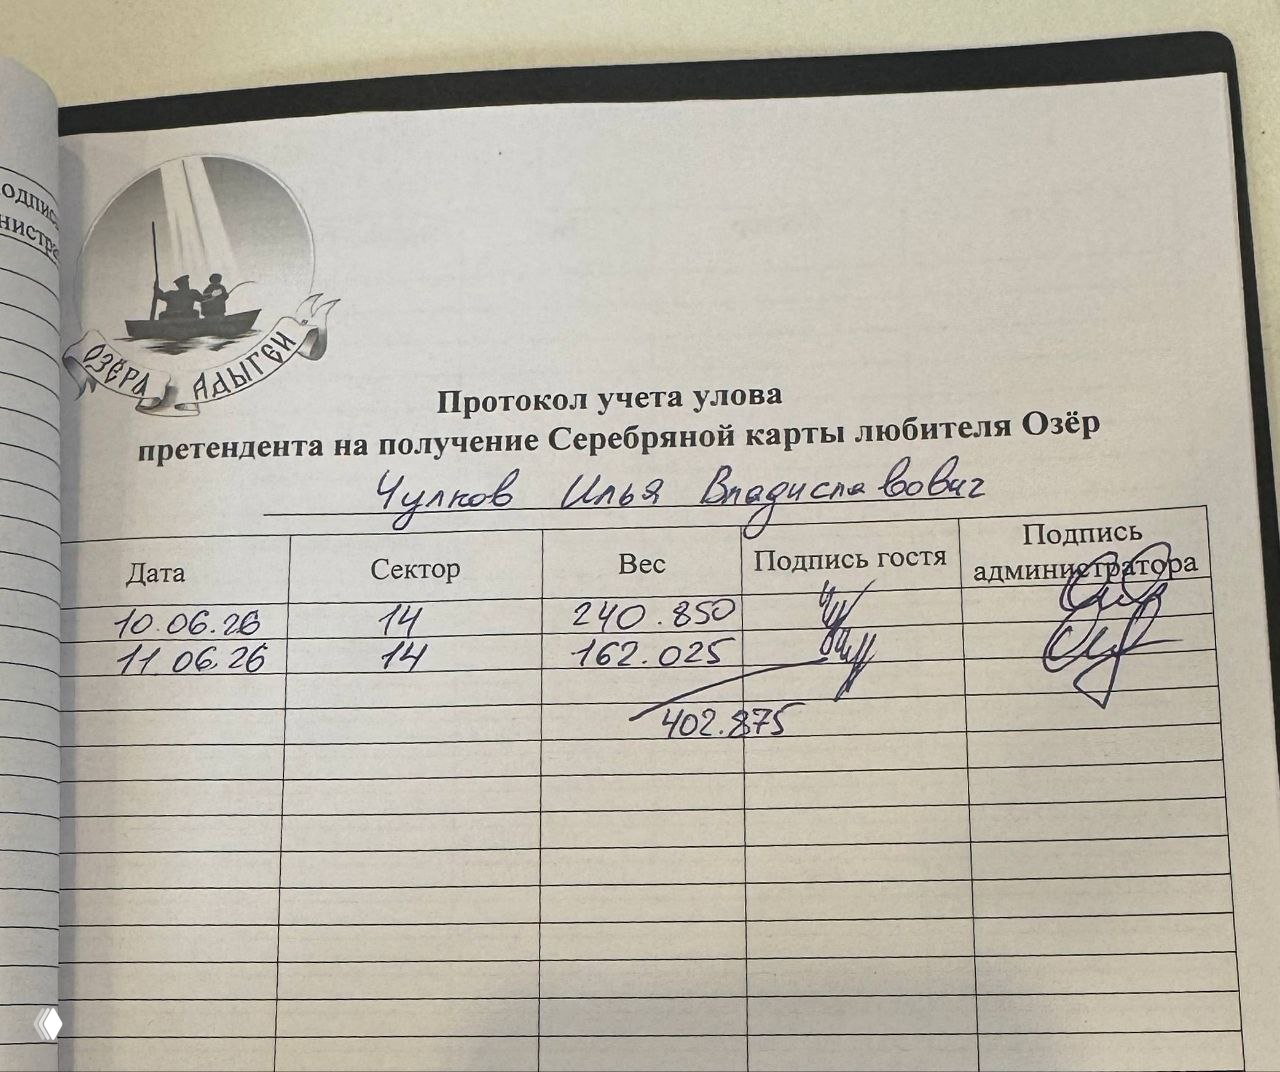 одпис
нистра
ОЗЁРА АДЫГЕИ
Протокол учета улова
претендента на получение Серебряной карты любителя Озёр
Чулков Илья Владиславович
Дата Сектор Вес Подпись гостя Подпись администратора
10.06.26 14 240.850
11.06.26 14 162.025
402.875